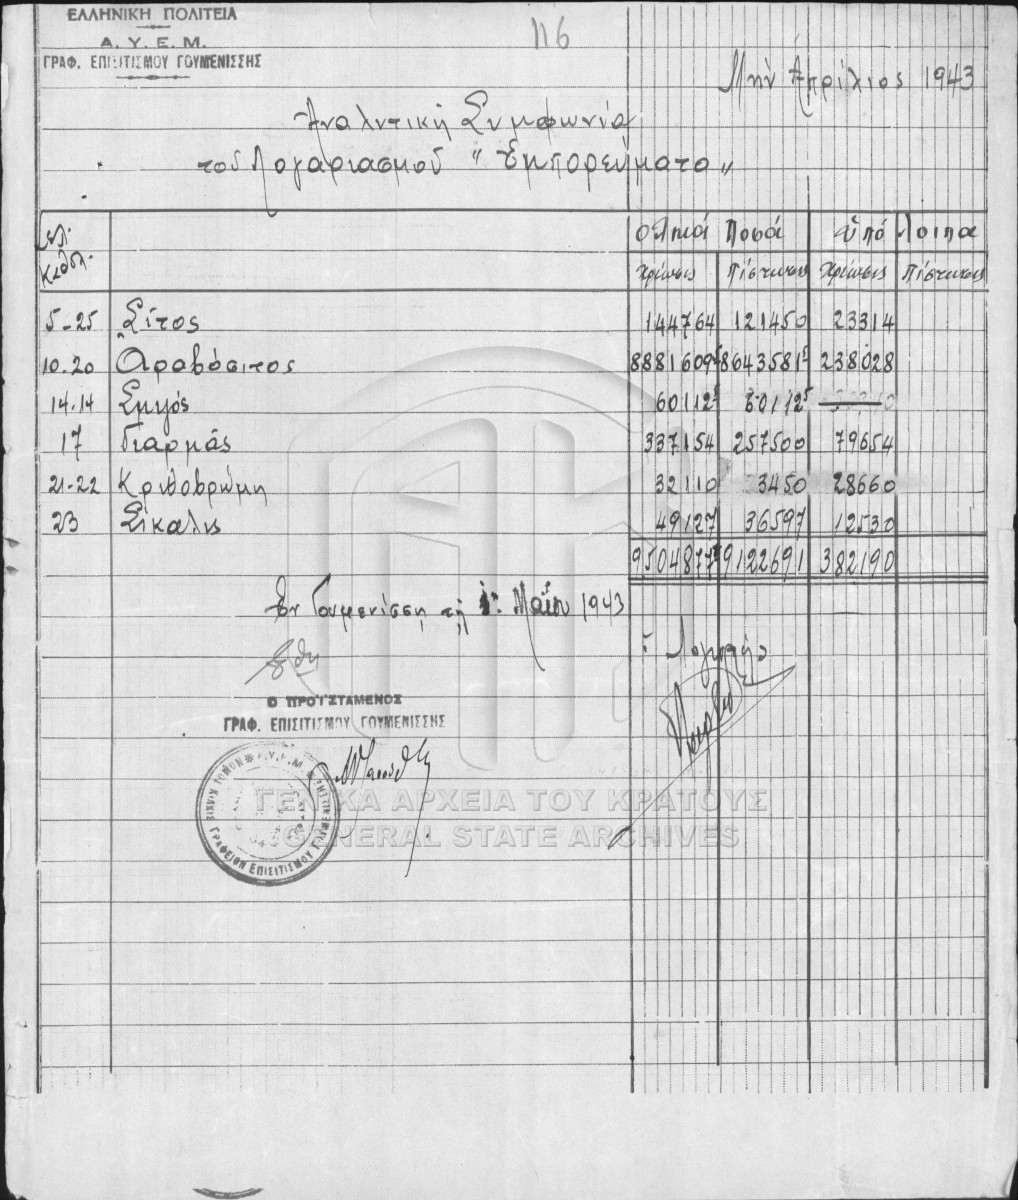 ΕΛΛΗΝΙΚΗ ΠΟΛΙΤΕΙΑ
Α. Υ. Ε. Μ.
ΓΡΑΦ. ΕΠΙΣΙΤΙΣΜΟΥ ΓΟΥΜΕΝΙΣΣΗΣ
116
Μην Απρίλιος 1943
Αναλυτική Συμφωνία
του Λογαριασμού "Εμπορεύματα"
Σελ. Καθολ. Ολικά Ποσά Υπόλοιπα
Χρέωσις Πίστωσις Χρέωσις Πίστωσις
5-25 Σίτος 144764 121450 23314
10.20 Αραβόσιτος 8881609⁵ 8643581⁵ 238028
14.14 Σμιγός 60112⁵ 60112⁵
17 Γιαρμάς 337154 257500 79654
21-22 Κριθοβρώμη 32110 3450 28660
23 Σίκαλις 49127 36597 12530
9504877 9122691 382190
Εν Γουμενίσση τη 1 Μαΐου 1943
Ο ΠΡΟΪΣΤΑΜΕΝΟΣ
ΓΡΑΦ. ΕΠΙΣΙΤΙΣΜΟΥ ΓΟΥΜΕΝΙΣΣΗΣ
Α.Υ.Ε.Μ. ΓΡΑΦΕΙΟΝ ΕΠΙΣΙΤΙΣΜΟΥ ΓΟΥΜΕΝΙΣΣΗΣ
ΓΕΝΙΚΑ ΑΡΧΕΙΑ ΤΟΥ ΚΡΑΤΟΥΣ
GENERAL STATE ARCHIVES